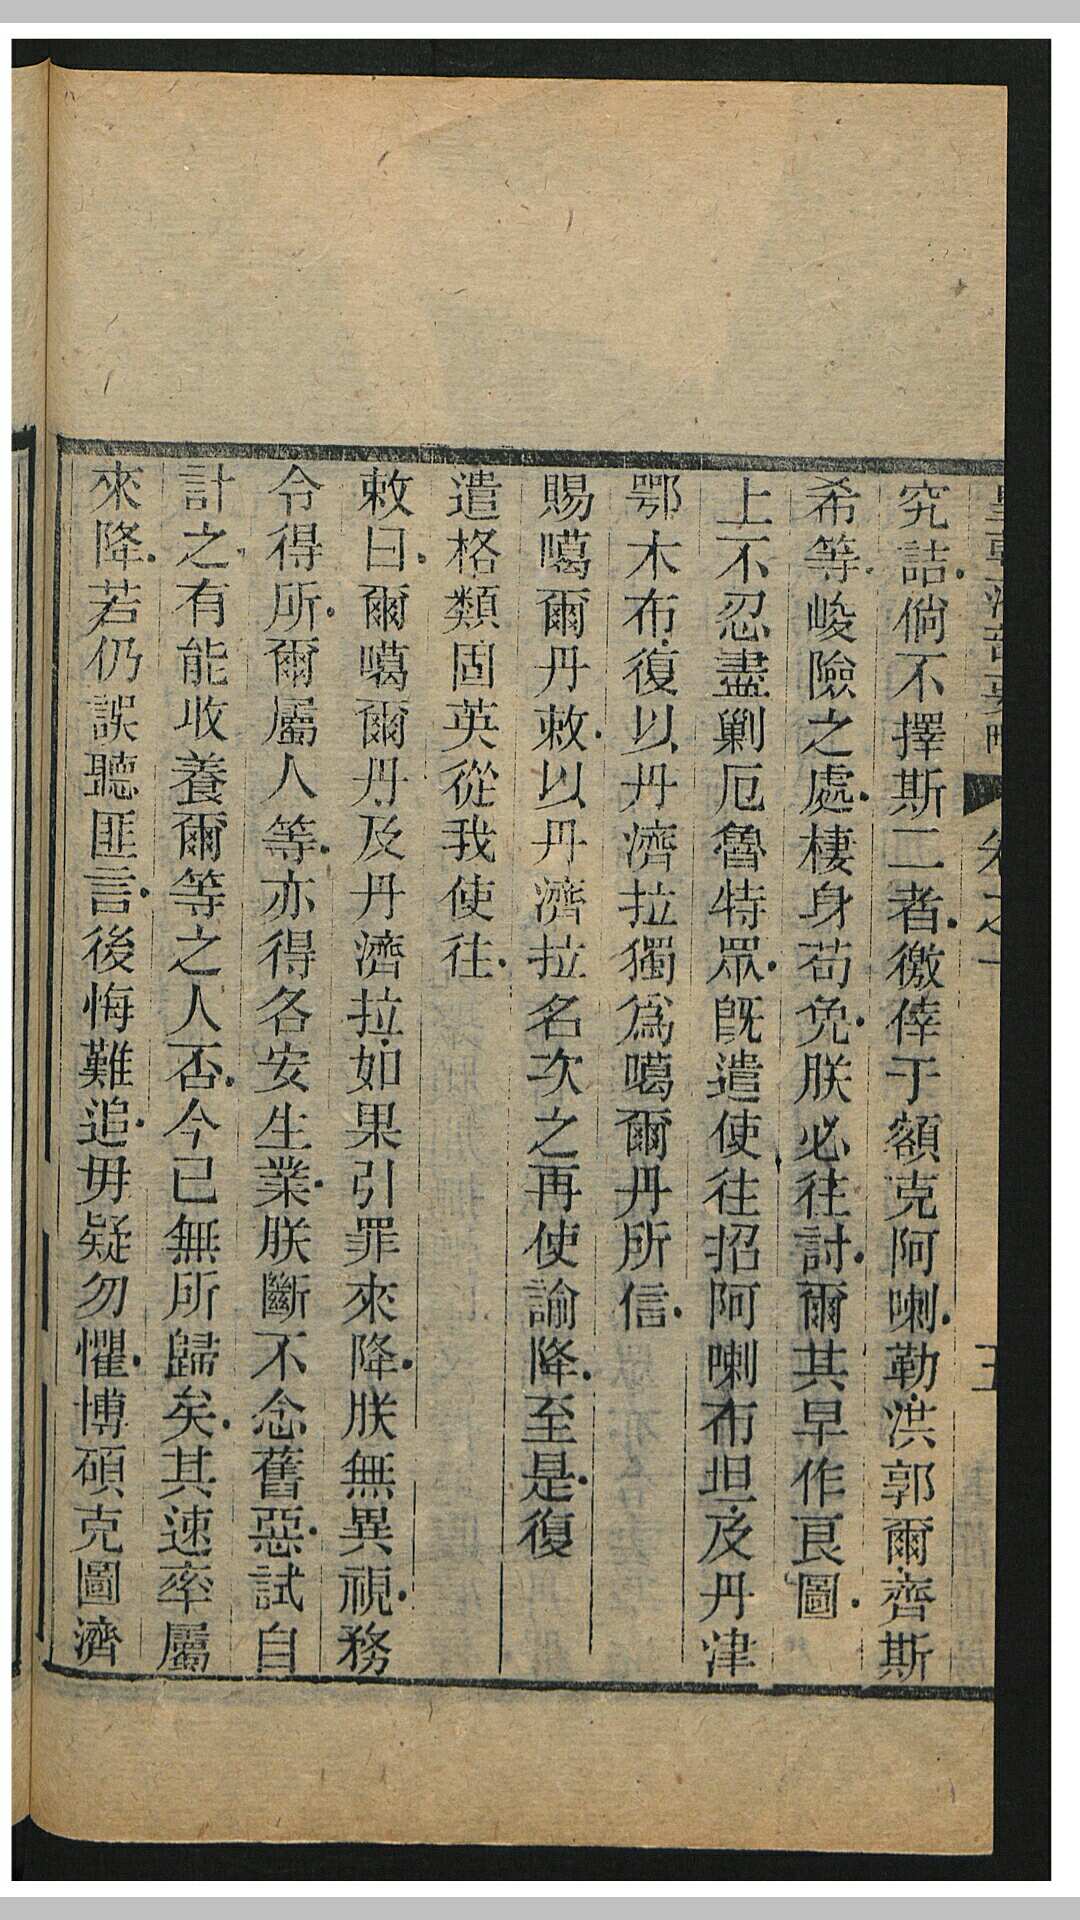 皇朝藩部要略 卷之十 五
究詰倘不擇斯二者徼倖于額克阿喇勒洪郭爾齊斯
希等峻險之處棲身苟免朕必往討爾其早作良圖
上不忍盡剿厄魯特眾既遣使往招阿喇布坦及丹津
鄂木布復以丹濟拉獨爲噶爾丹所信
賜噶爾丹敕以丹濟拉名次之再使諭降至是復
遣格類固英從我使往
敕曰爾噶爾丹及丹濟拉如果引罪來降朕無異視務
令得所爾屬人等亦得各安生業朕斷不念舊惡試自
計之有能收養爾等之人否今已無所歸矣其速率屬
來降若仍誤聽匪言後悔難追毋疑勿懼博碩克圖濟